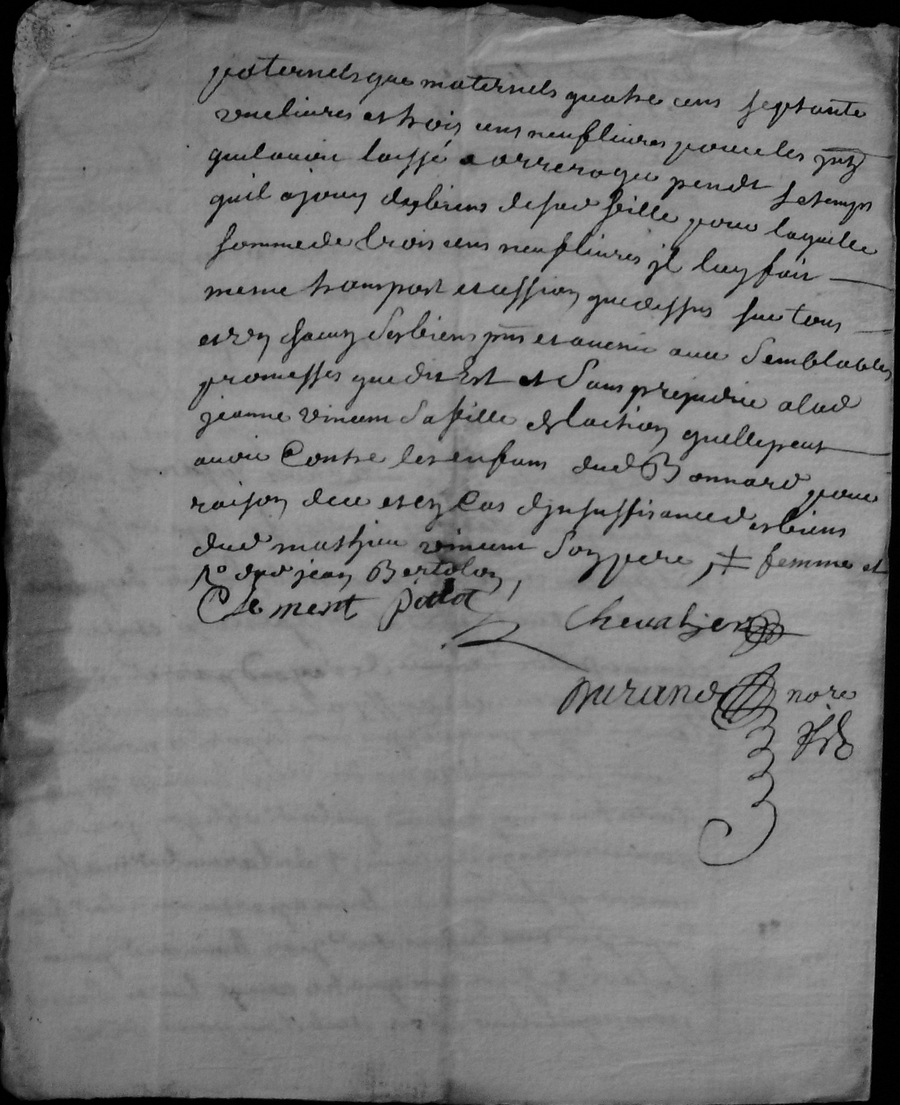 paternels que maternels quatre cens septante
une livres et trois cens neuf livres pour les
quil avoit laissé a arrerager pendt le temps
quil a jouy desbiens de sad fille pour laquelle
somme de trois cens neuf livres jl luy fait
mesme transport et cession que dessus sur tous
et un chacuy ses biens pns et avenir avec semblables
promesses que dit Est et sans prejudice a lad
jeanne vincent sa fille de laction quelle peut
avoir Contre les enfans dud Bonnard pour
raison dece et ey Cas dynsuffisance desbiens
dud mathieu vincent soy pere, ‡ femme et
dud jean Bertoloy,
Clement patot
Chevalier
Durand nore